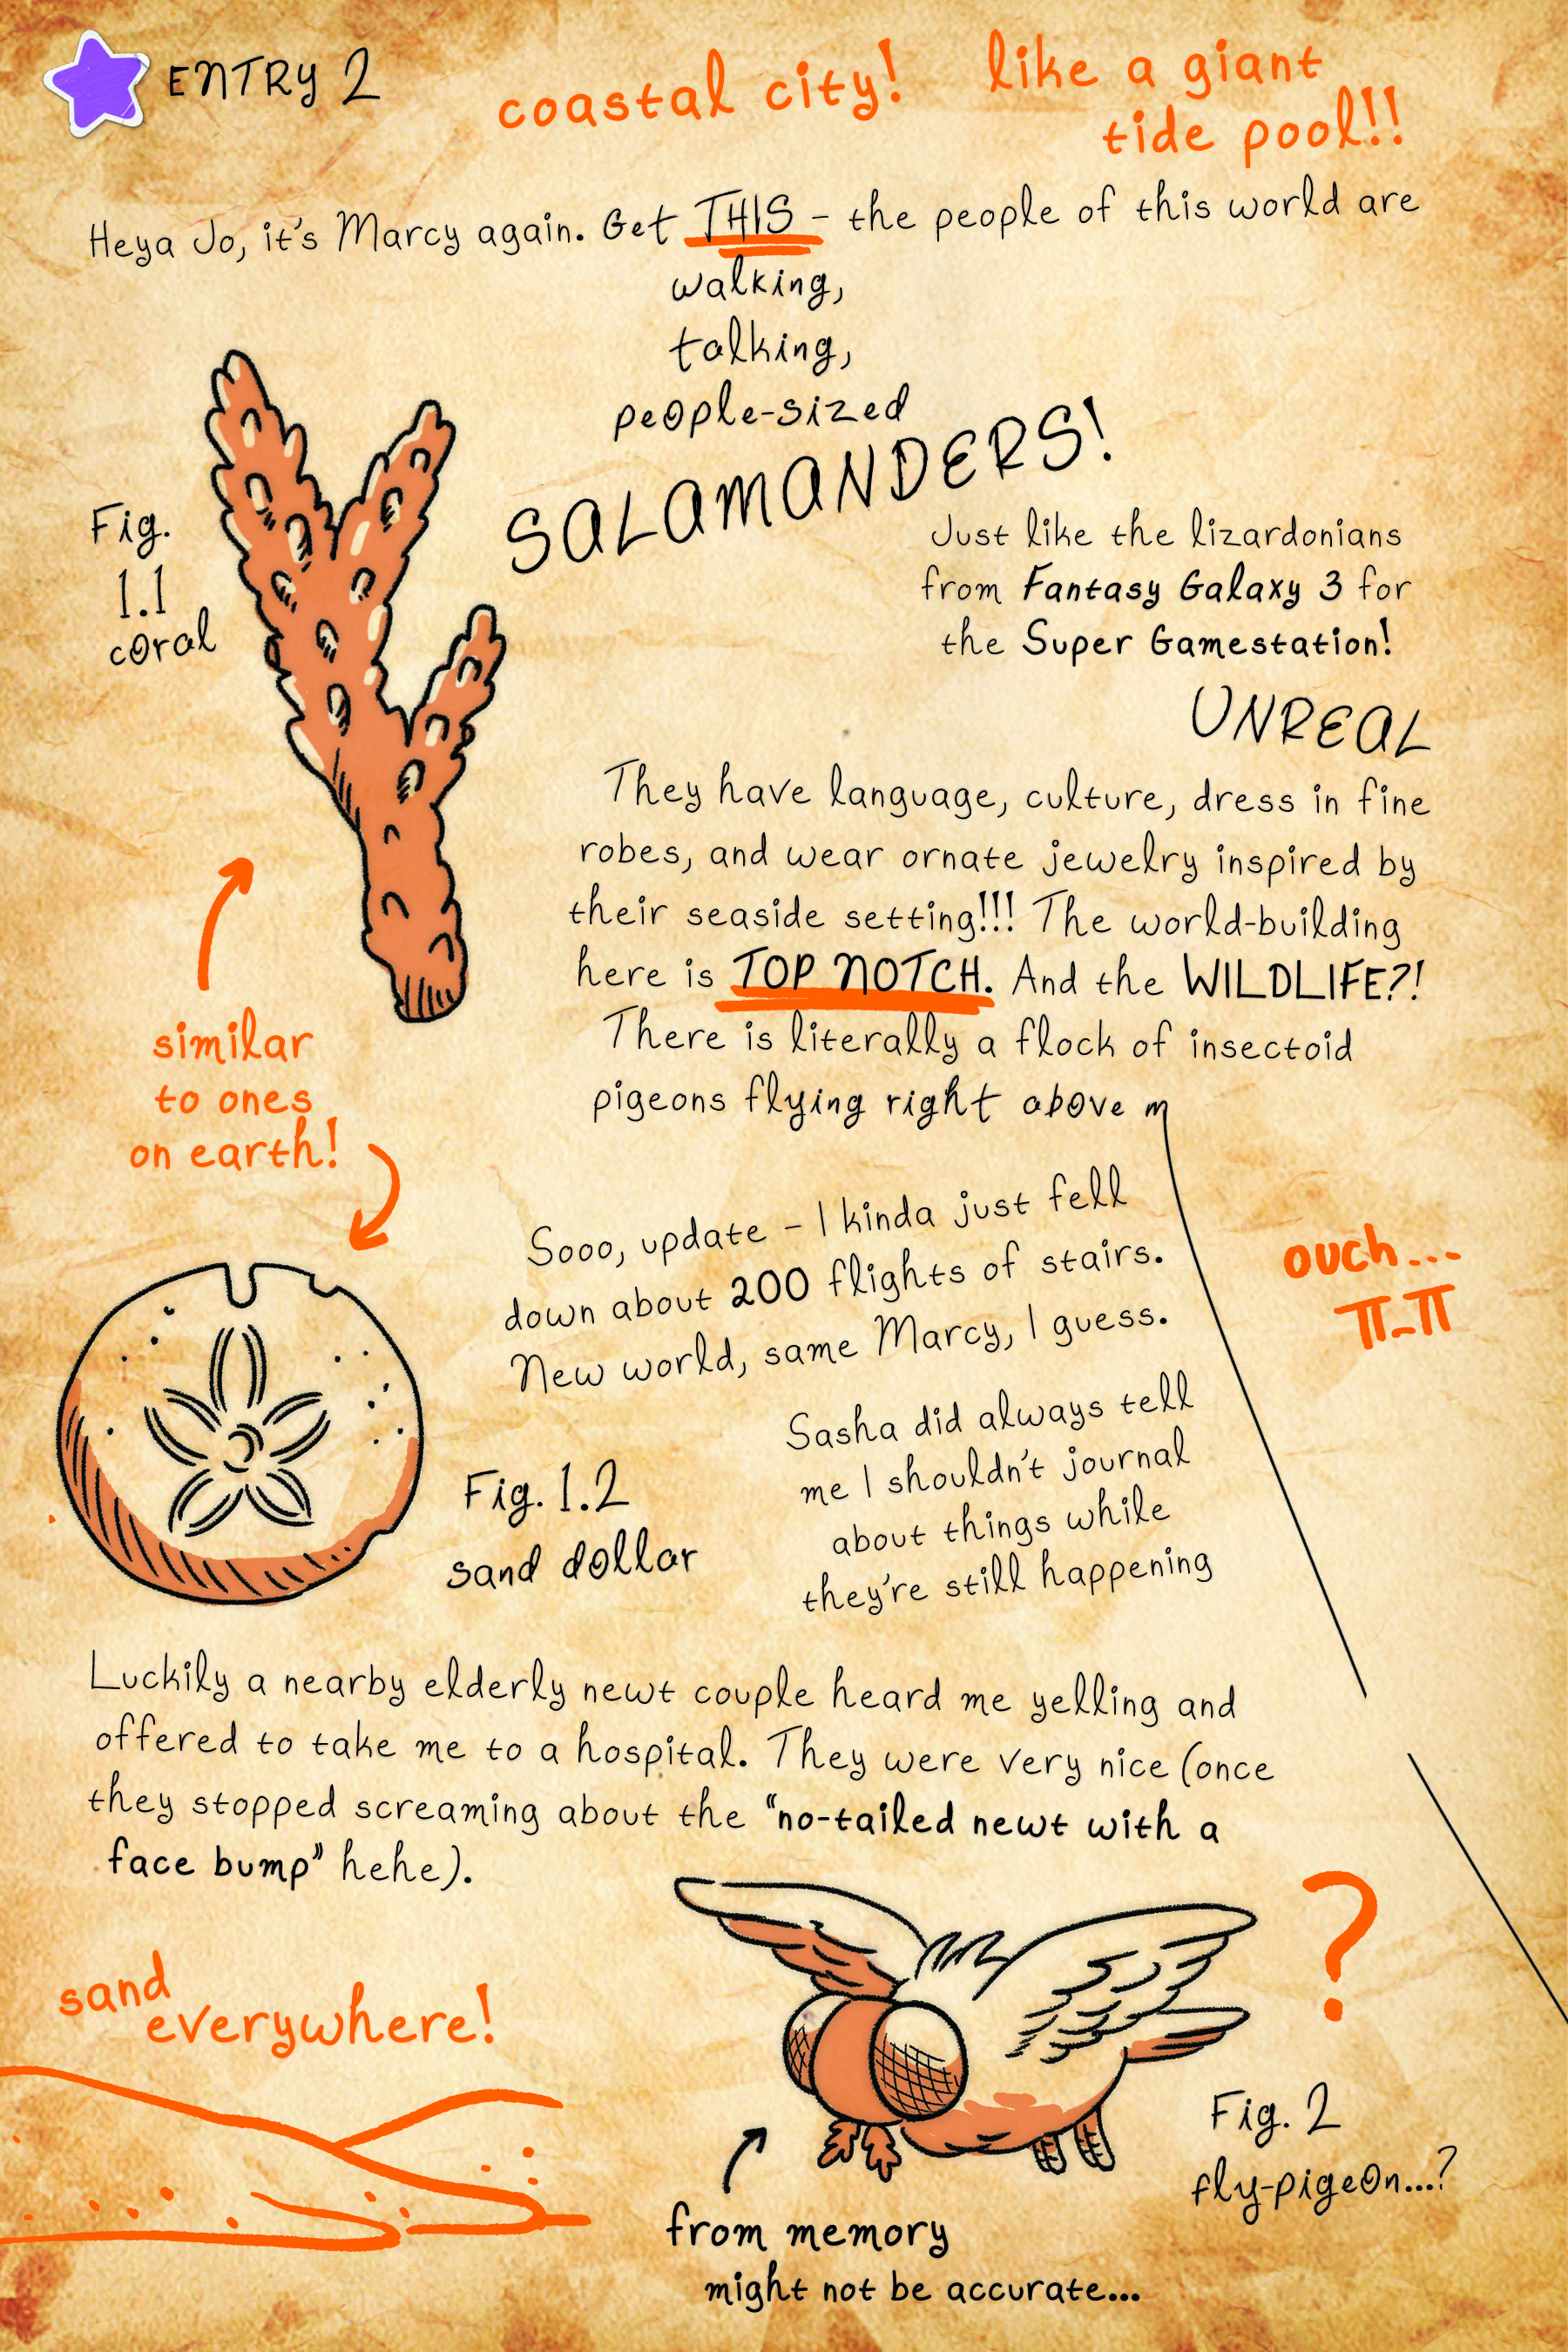 ENTRY 2
coastal city!
like a giant
tide pool!!
Heya Jo, it's Marcy again. Get THIS - the people of this world are
walking,
talking,
people-sized
SALAMANDERS!
Just like the lizardonians
from Fantasy Galaxy 3 for
the Super Gamestation!
UNREAL
Fig.
1.1
coral
They have language, culture, dress in fine
robes, and wear ornate jewelry inspired by
their seaside setting!!! The world-building
here is TOP NOTCH. And the WILDLIFE?!
There is literally a flock of insectoid
pigeons flying right above m
similar
to ones
on earth!
Sooo, update - I kinda just fell
down about 200 flights of stairs.
New world, same Marcy, I guess.
ouch...
π_π
Sasha did always tell
me I shouldn't journal
about things while
they're still happening
Fig. 1.2
sand dollar
Luckily a nearby elderly newt couple heard me yelling and
offered to take me to a hospital. They were very nice (once
they stopped screaming about the "no-tailed newt with a
face bump" hehe).
sand
everywhere!
?
Fig. 2
fly-pigeon...?
from memory
might not be accurate...